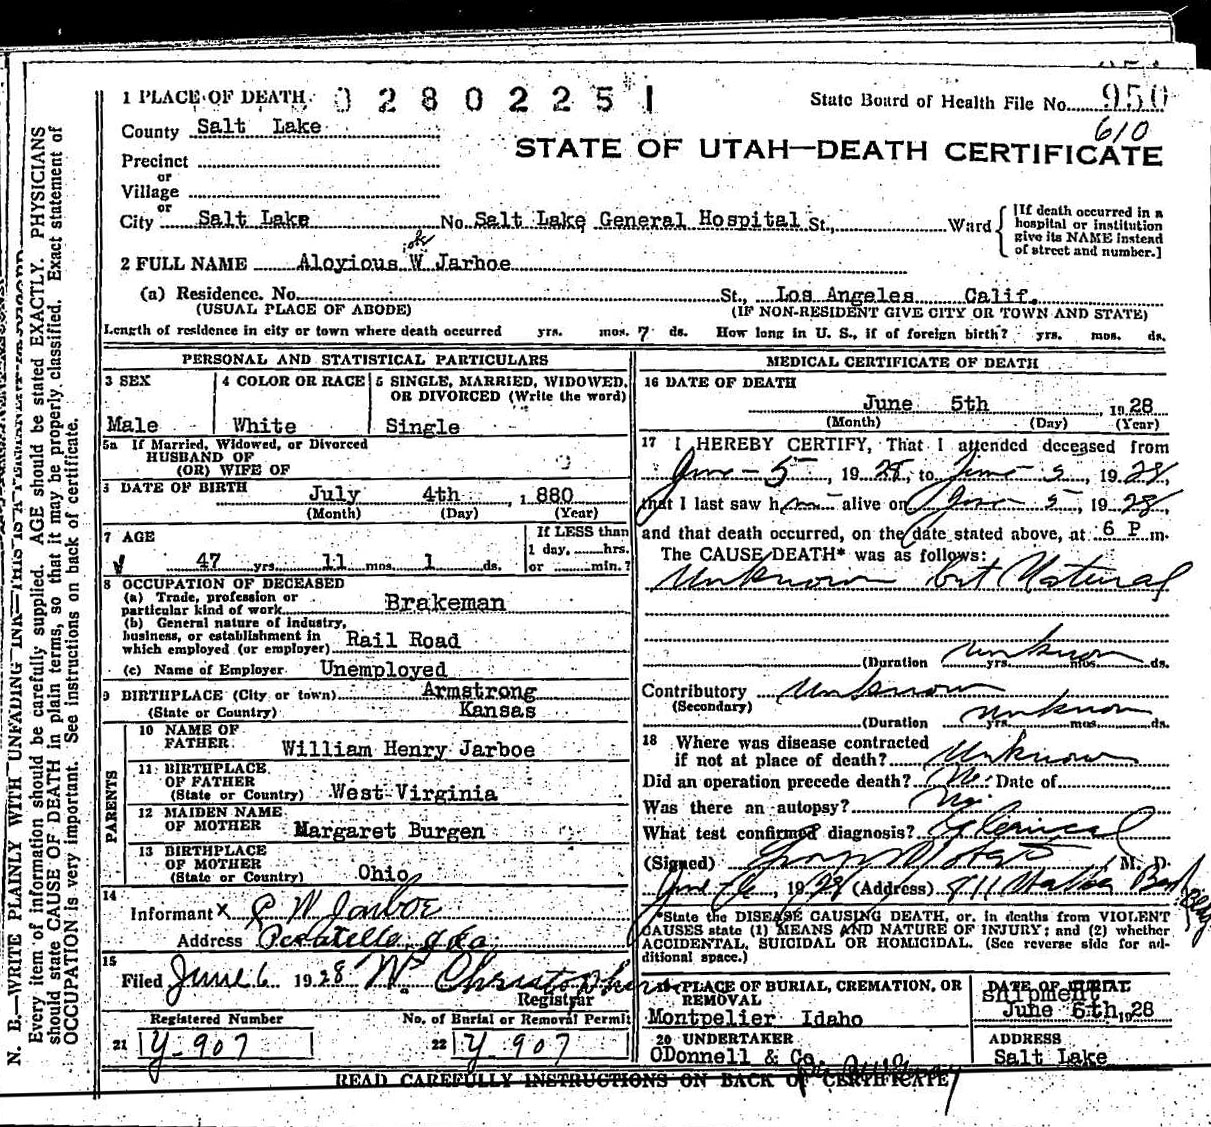 1 PLACE OF DEATH 0280225 1
State Board of Health File No. 950
610
County Salt Lake
STATE OF UTAH—DEATH CERTIFICATE
Precinct
or
Village
or
City Salt Lake No. Salt Lake General Hospital St., Ward
[If death occurred in a hospital or institution give its NAME instead of street and number.]
ok
2 FULL NAME Aloyious W Jarboe
(a) Residence. No. St., Los Angeles Calif.
(USUAL PLACE OF ABODE) (IF NON-RESIDENT GIVE CITY OR TOWN AND STATE)
Length of residence in city or town where death occurred yrs. mos. 7 ds. How long in U. S., if of foreign birth? yrs. mos. ds.
PERSONAL AND STATISTICAL PARTICULARS
3 SEX 4 COLOR OR RACE 5 SINGLE, MARRIED, WIDOWED,
OR DIVORCED (Write the word)
Male White Single
5a If Married, Widowed, or Divorced
HUSBAND OF
(OR) WIFE OF
DATE OF BIRTH July 4th 1880
(Month) (Day) (Year)
7 AGE If LESS than
1 day, hrs.
47 yrs. 11 mos. 1 ds. or min.?
8 OCCUPATION OF DECEASED
(a) Trade, profession or
particular kind of work Brakeman
(b) General nature of industry,
business, or establishment in
which employed (or employer) Rail Road
(c) Name of Employer Unemployed
9 BIRTHPLACE (City or town) Armstrong
(State or Country) Kansas
PARENTS
10 NAME OF
FATHER William Henry Jarboe
11 BIRTHPLACE
OF FATHER
(State or Country) West Virginia
12 MAIDEN NAME
OF MOTHER Margaret Burgen
13 BIRTHPLACE
OF MOTHER
(State or Country) Ohio
14
Informant x P W Jarboe
Address Pocatello Ida
15
Filed June 6 1928 Wm Christopherson
Registrar
Registered Number No. of Burial or Removal Permit
21 Y-907 22 Y-907
MEDICAL CERTIFICATE OF DEATH
16 DATE OF DEATH
June 5th, 1928
(Month) (Day) (Year)
17 I HEREBY CERTIFY, That I attended deceased from
June - 5, 1928, to June 5, 1928,
that I last saw him alive on June 5, 1928,
and that death occurred, on the date stated above, at 6 P m.
The CAUSE DEATH* was as follows:
Unknown but Natural
(Duration unknown yrs. mos. ds.
Contributory Unknown
(Secondary)
(Duration unknown yrs. mos. ds.
18 Where was disease contracted
if not at place of death? Unknown
Did an operation precede death? No Date of
Was there an autopsy? No
What test confirmed diagnosis? Clinical
(Signed) , M. D.
June 6, 1928 (Address) 911 Walker Bank Bldg
*State the DISEASE CAUSING DEATH, or, in deaths from VIOLENT
CAUSES state (1) MEANS AND NATURE OF INJURY; and (2) whether
ACCIDENTAL, SUICIDAL OR HOMICIDAL. (See reverse side for ad-
ditional space.)
19 PLACE OF BURIAL, CREMATION, OR
REMOVAL
Montpelier Idaho
DATE OF BURIAL
shipment
June 6th, 1928
20 UNDERTAKER ADDRESS
ODonnell & Co Salt Lake
READ CAREFULLY INSTRUCTIONS ON BACK OF CERTIFICATE
N. B.—WRITE PLAINLY WITH UNFADING INK—THIS IS A PERMANENT RECORD
Every item of information should be carefully supplied. AGE should be stated EXACTLY. PHYSICIANS
should state CAUSE OF DEATH in plain terms, so that it may be properly classified. Exact statement of
OCCUPATION is very important. See instructions on back of certificate.